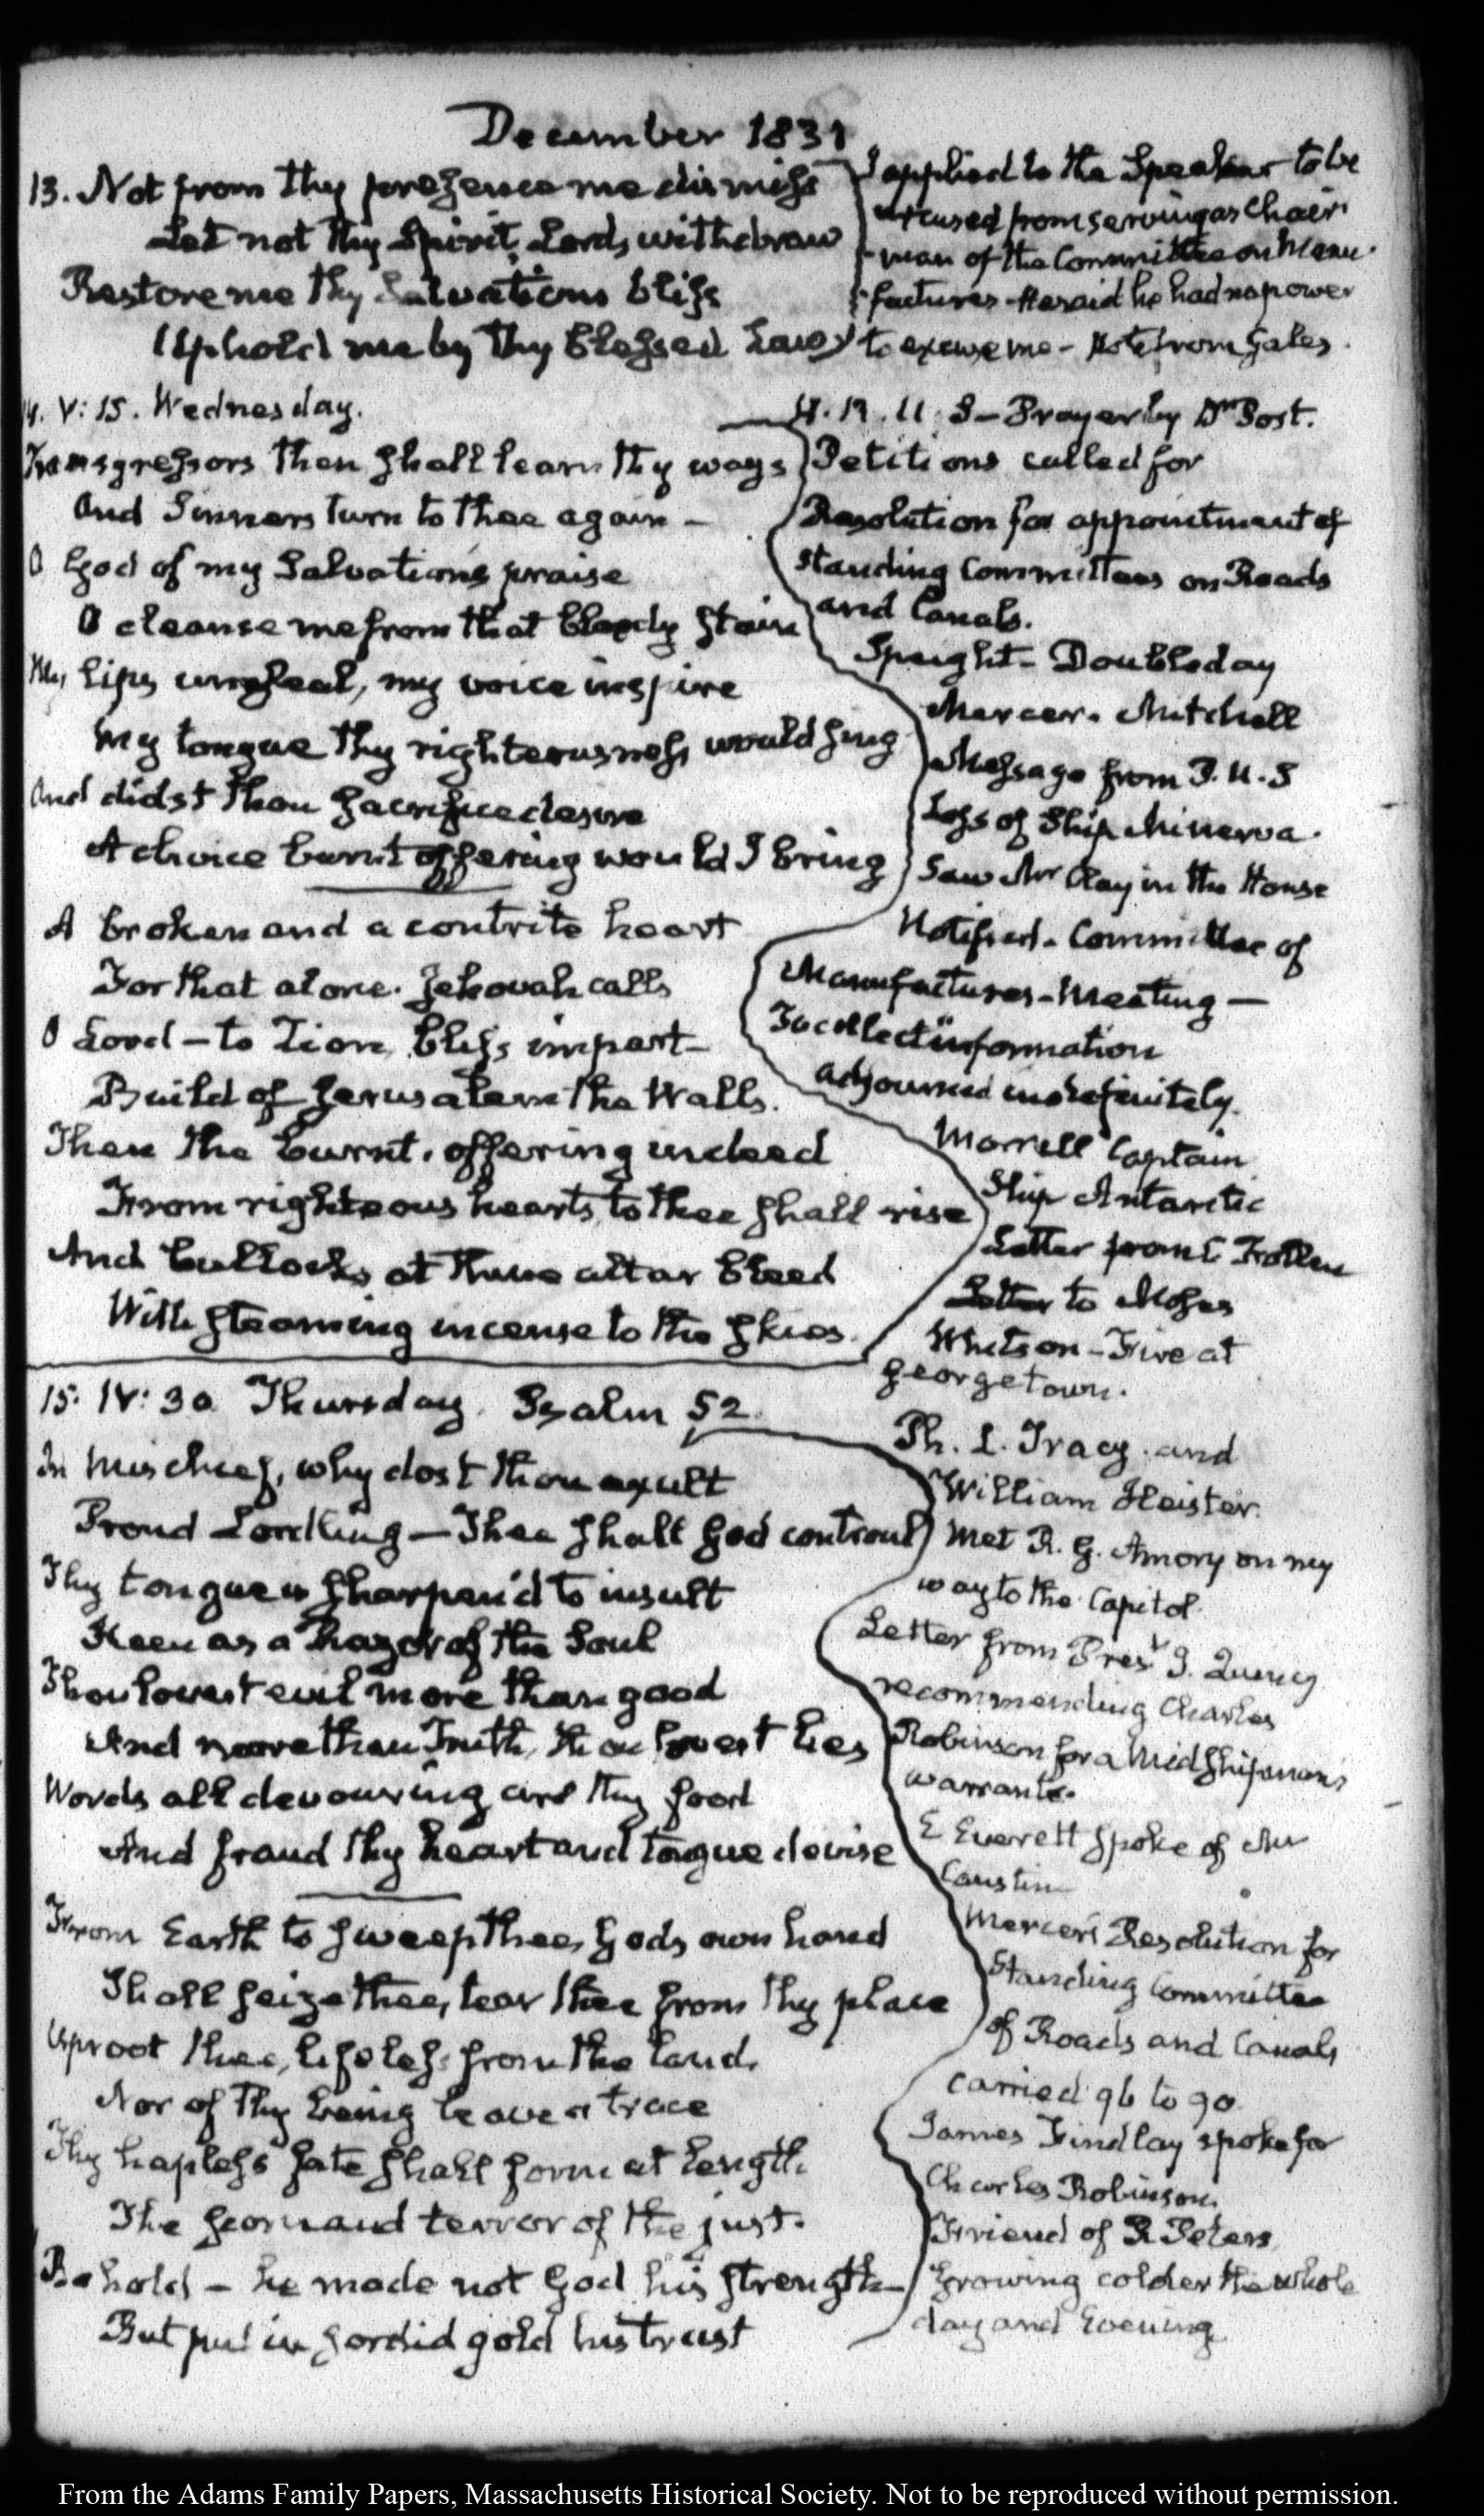 December 1831
13. Not from thy presence me dismiss
Let not thy Spirit, Lord, withdraw
Restore me thy Salvation's bliss
Uphold me by thy blessed Law
I applied to the Speaker to be
excused from serving as Chair-
man of the Committee on Manu-
factures - He said he had no power
to excuse me - Note from Gales.
14. V: 15. Wednesday.
Transgressors then shall learn thy ways
And Sinners turn to thee again -
O God of my Salvation's praise
O cleanse me from that bloody stain
My lips unseal, my voice inspire
My tongue thy righteousness would sing
And didst thou sacrifice desire
A choice burnt offering would I bring
A broken and a contrite heart
For that alone Jehovah calls
O Lord - to Zion bliss impart -
Build of Jerusalem the Walls.
Then the burnt offering indeed
From righteous hearts to thee shall rise
And bullocks at thine altar bleed
With steaming incense to the skies.
H. R. U. S - Prayer by Dr Post.
Petitions called for
Resolution for appointment of
standing Committees on Roads
and Canals.
Speight - Doubleday
Mercer. Mitchell
Message from P. U. S
Loss of Ship Minerva.
Saw Mr Clay in the House
Notified. Committee of
Manufactures - Meeting -
To collect information
adjourned indefinitely.
Morrell Captain
Ship Antarctic
Letter from C Follen
Letter to Moses
Whitson - Fire at
Georgetown.
15. IV: 30 Thursday. Psalm 52
In mischief, why dost thou exult
Proud Lordling - Thee shall God controul
Thy tongue is sharpen'd to insult
Keen as a Razor of the Soul
Thou lovest evil more than good
And more than Truth, thou lovest lies
Words all devouring are thy food
And fraud thy heart and tongue devise
From Earth to sweep thee, God's own hand
Shall seize thee, tear thee from thy place
Uproot thee, lifeless from the land,
Nor of thy being leave a trace
Thy hapless fate shall form at length
The scorn and terror of the just.
Behold - he made not God his strength
But put in sordid gold his trust
Ph. L. Tracy. and
William Heister.
Met R. G. Amory on my
way to the Capitol.
Letter from Prest J. Quincy
recommending Charles
Robinson for a Midshipman's
warrant.
E Everett spoke of Mr
Caustin
Mercer's Resolution for
Standing Committee
of Roads and Canals
carried 96 to 90.
James Findlay spoke for
Charles Robinson.
Friend of R Peters
Growing colder the whole
day and Evening
From the Adams Family Papers, Massachusetts Historical Society. Not to be reproduced without permission.